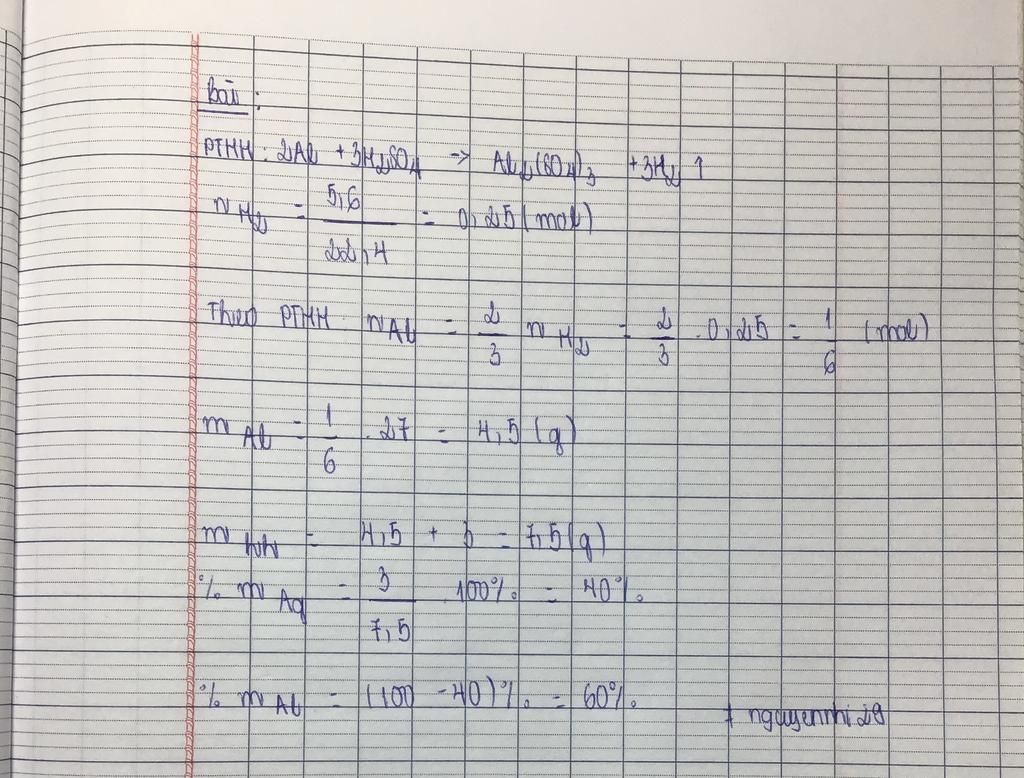 Bài:
PTHH: 2Al + 3H₂SO₄ → Al₂(SO₄)₃ + 3H₂ ↑
n H₂ = 5,6 / 22,4 = 0,25 (mol)
Theo PTHH n Al = 2/3 n H₂ = 2/3 . 0,25 = 1/6 (mol)
m Al = 1/6 . 27 = 4,5 (g)
m hh = 4,5 + 3 = 7,5 (g)
% m Ag = 3 / 7,5 100% = 40%
% m Al = (100 - 40)% = 60%
# nguyennhi29